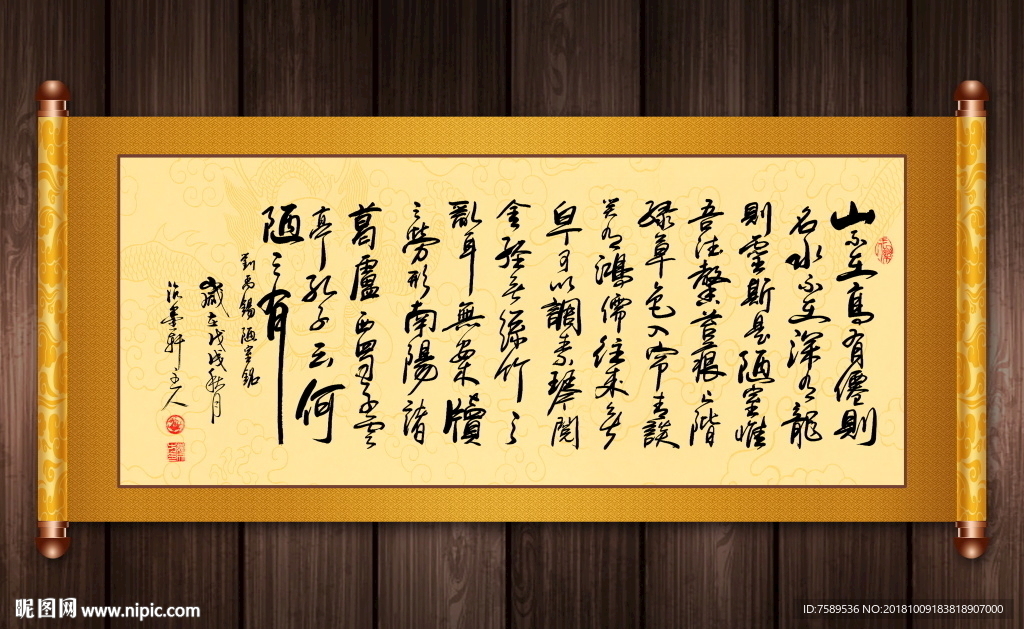 山不在高有僊則
名水不在深有龍
則靈斯是陋室惟
吾德馨苔痕上階
緑草色入帘青談
笑有鴻儒往來無
白丁可以調素琴閱
金經無絲竹之
亂耳無案牘
之勞形南陽諸
葛廬西蜀子雲
亭孔子云何
陋之有
劉禹錫陋室銘
歲在戊戌秋月
墨軒主人
昵图网 www.nipic.com
ID:7589536 NO:20181009183818907000